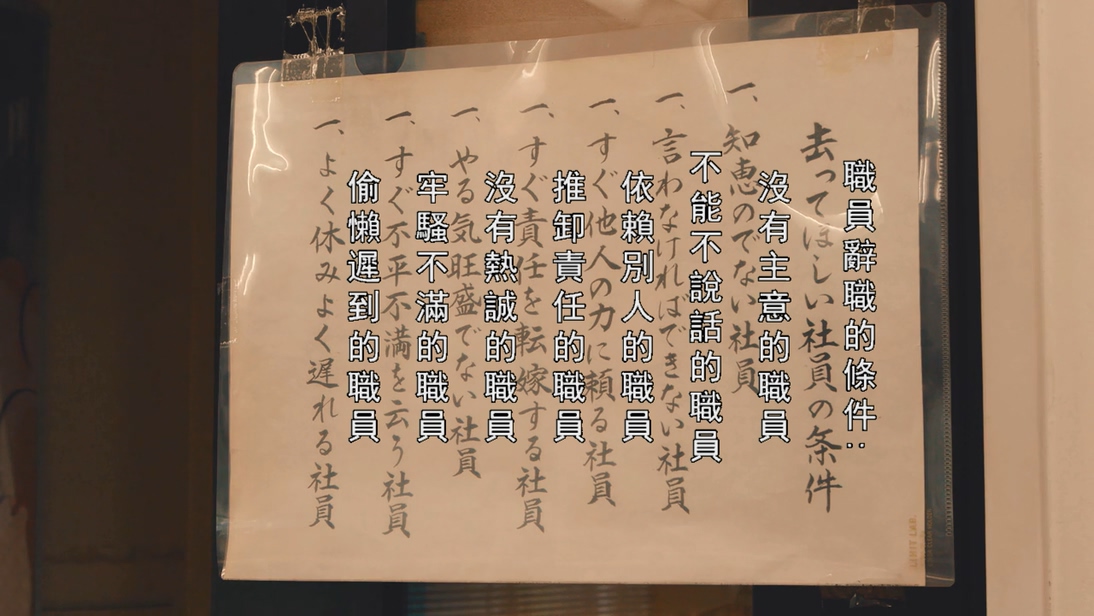 去ってほしい社員の条件
一、知恵のでない社員
一、言わなければできない社員
一、すぐ他人の力に頼る社員
一、すぐ責任を転嫁する社員
一、やる気旺盛でない社員
一、すぐ不平不満を云う社員
一、よく休みよく遅れる社員
職員辭職的條件：
沒有主意的職員
不能不說話的職員
依賴別人的職員
推卸責任的職員
沒有熱誠的職員
牢騷不滿的職員
偷懶遲到的職員